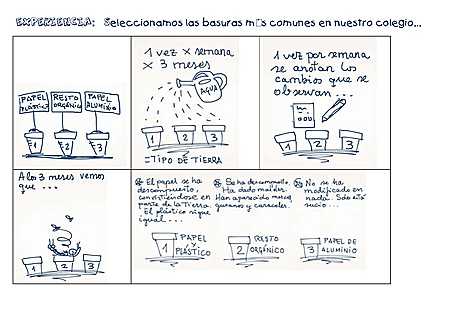 EXPERIENCIA: Seleccionamos las basuras m□s comunes en nuestro colegio...
PAPEL PLÁSTICO
RESTO ORGÁNICO
PAPEL ALUMINIO
1
2
3
1 vez x semana
x 3 meses
AGUA
1
2
3
=TIPO DE TIERRA
1 vez por semana
se anotan los
cambios que se
observan...
1
2
3
A los 3 meses vemos
que ...
1
2
3
El papel se ha
descompuesto,
convistiéndose en
parte de la tierra.
El plástico sigue
igual...
1
PAPEL
Y
PLÁSTICO
Se ha descompuesto.
Ha dado mal olor.
Han aparecido
gusanos y caracoles.
2
RESTO
ORGÁNICO
No se ha
modificado en
nada. Sólo está
sucio...
3
PAPEL DE
ALUMINIO